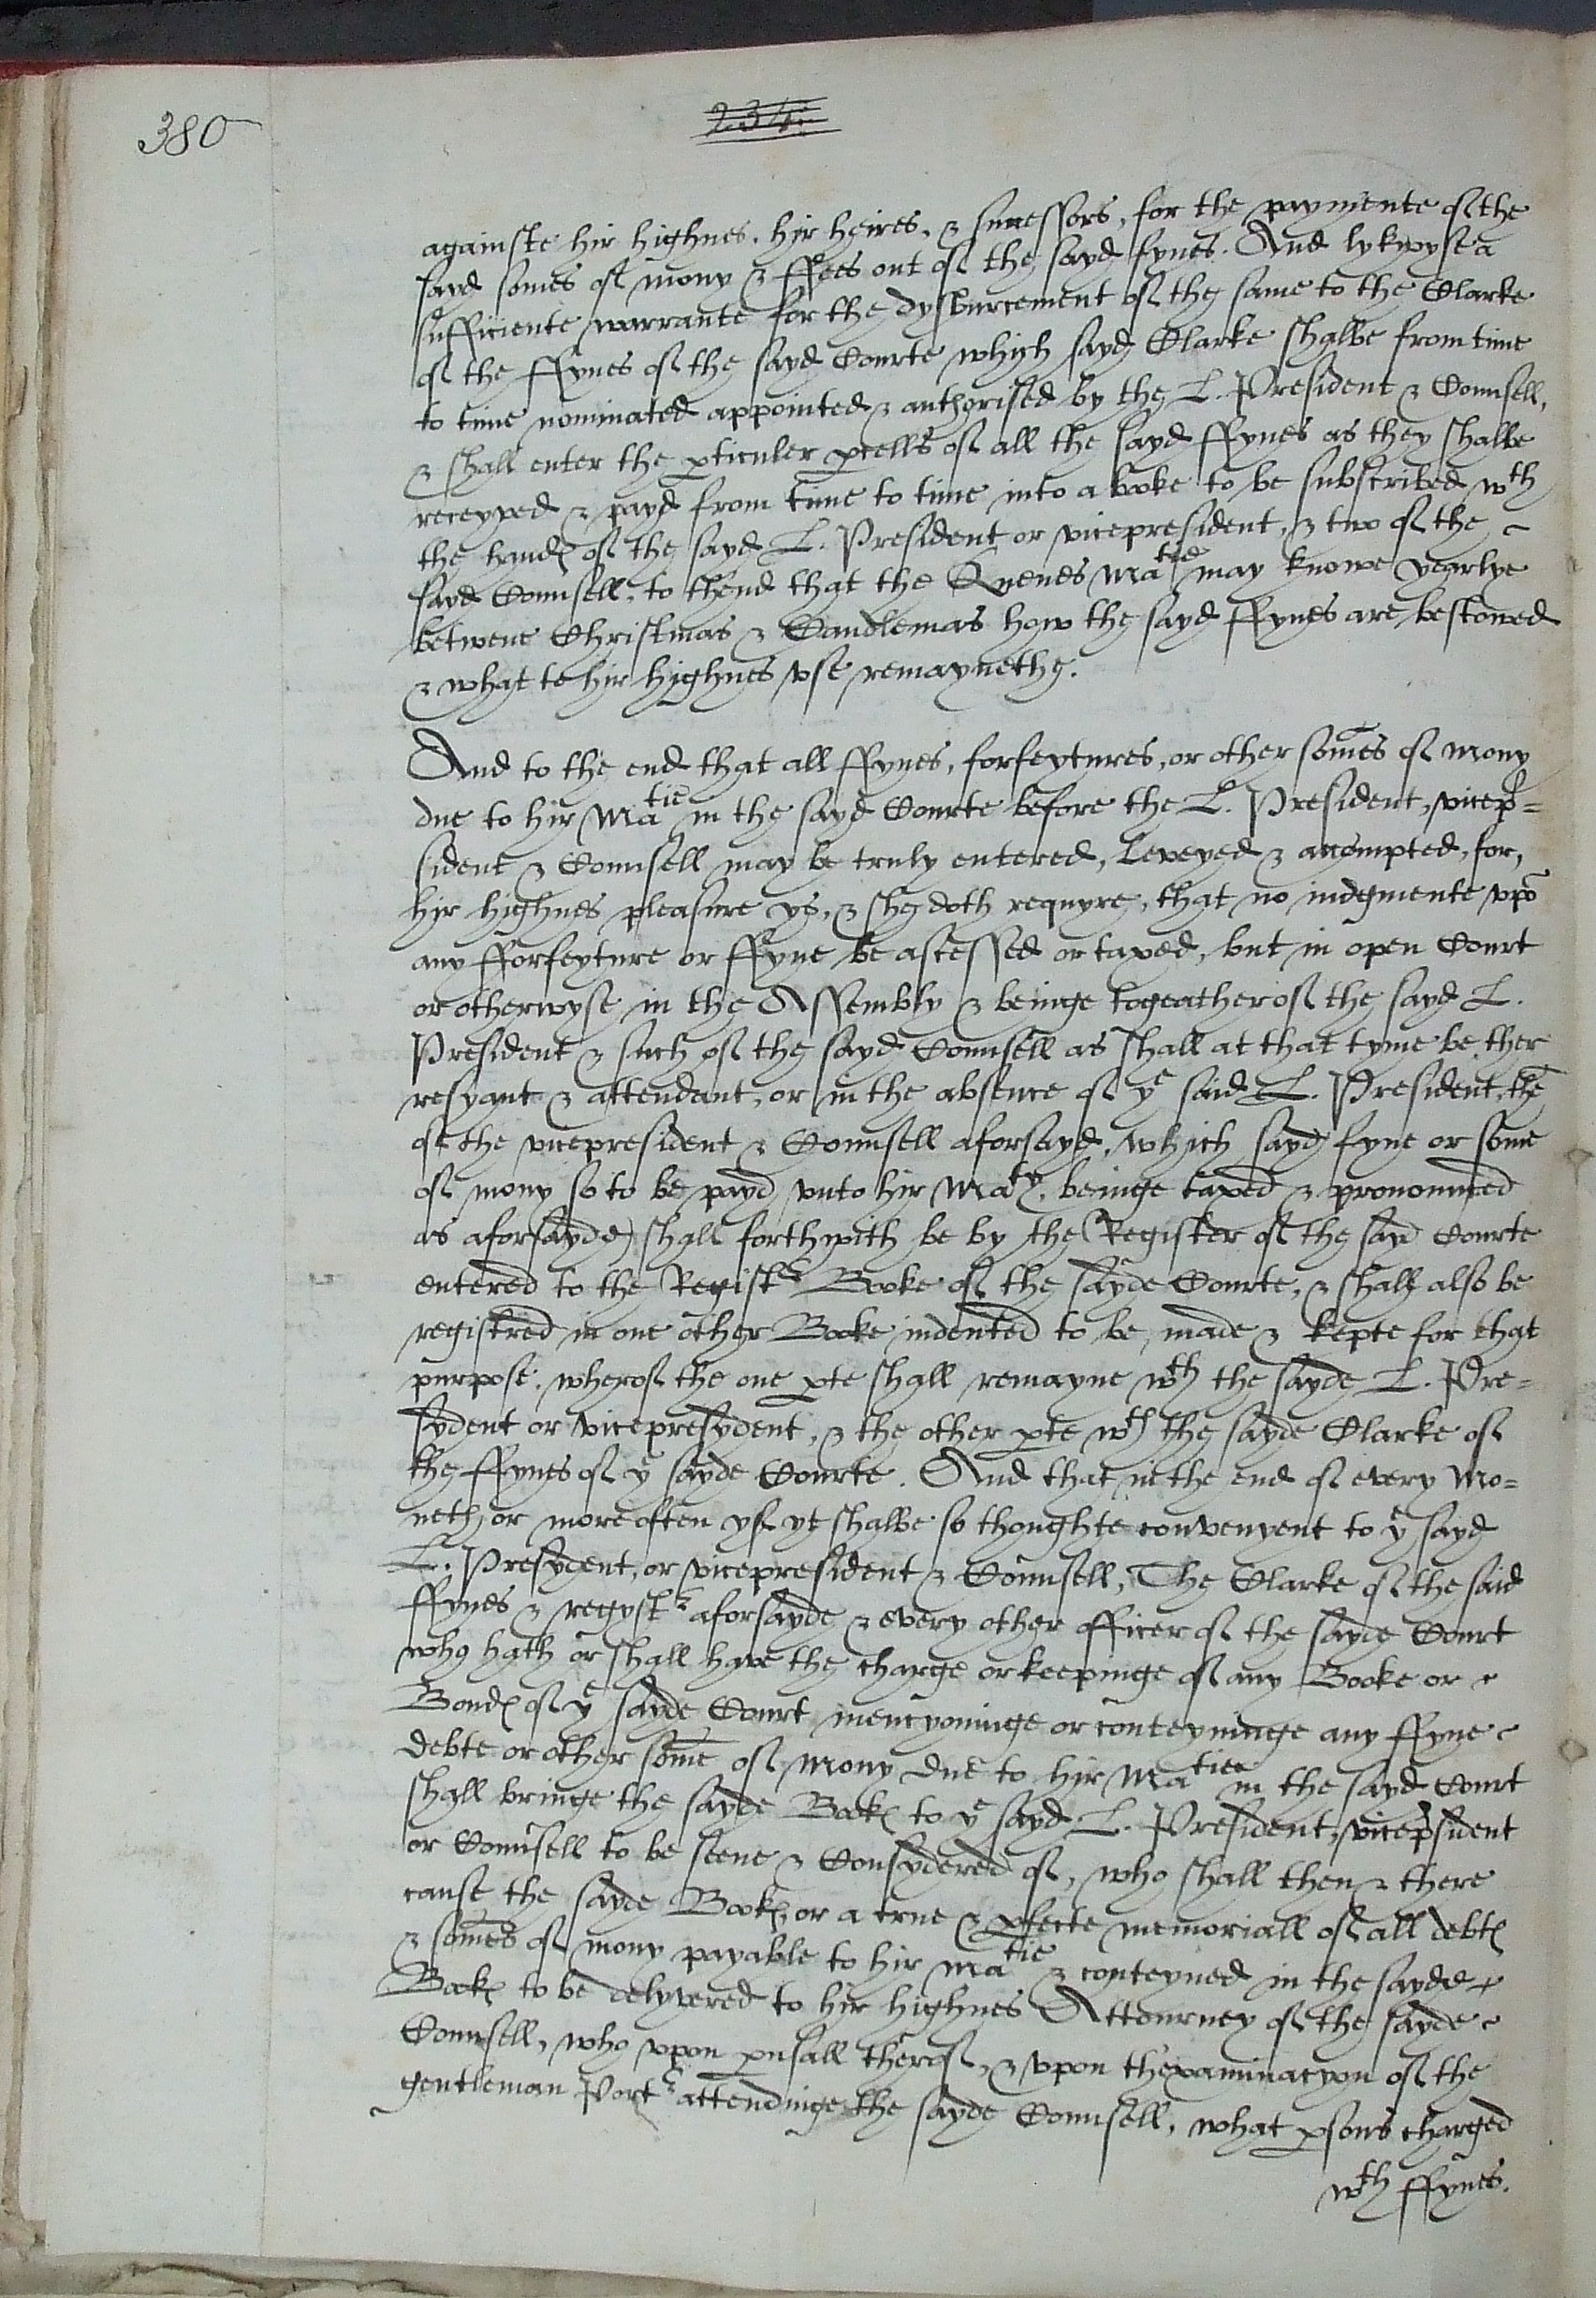 380
234
againste hir highnes, hir heires, & successors, for the paymente of the
sayd somes of mony & ffees out of the sayd fynes. And lykwyse a
sufficiente warrante for the dysburcement of the same to the Clarke
of the ffynes of the sayd Courte which sayd Clarke shalbe from time
to time nominated appointed & authorised by the L. President & Counsell,
& shall enter the pticuler pcells of all the sayd ffynes as they shalbe
receyved & payd from time to time into a booke to be subscribed wth
the hands of the sayd L. President or vicepresident, & two of the
sayd Counsell, to thend that the Quenes Matie may knowe yearlye
betwene Christmas & Candlemas how the sayd ffynes are bestowed
& what to hir highnes vse remaynethe.
And to the end that all ffynes, forfeytures, or other somes of mony
due to hir Matie in the sayd Courte before the L. President, vicep=
sident & Counsell may be truly entered, leveyed & accompted, for,
hir highnes pleasure ys, & she doth requyre, that no iudgmente vpo
any fforfeyture or ffyne be assessed or taxed, but in open Court
or otherwyse in the Assembly & beinge togeather of the sayd L.
President & such of the sayd Counsell as shall at that tyme be ther
resyant & attendant, or in the absence of ye said L. President, the
of the vicepresident & Counsell aforsayd, which sayd fyne or some
of mony so to be payd vnto hir Maty, beinge taxed & pronounced
as aforsayde) shall forthwith be by the Register of the sayd Courte
entered to the Registr Booke of the sayde Courte, & shall also be
registred in one other Booke indented to be, made & kepte for that
purpose, wherof the one pte shall remayne wth the sayde L. Pre=
sydent or vicepresydent, & the other pte wth the sayde Clarke of
the ffynes of ye sayde Courte. And that in the end of every Mo=
neth, or more often yf yt shalbe so thoughte convenyent to ye sayd
L. Presydent, or vicepresident & Counsell, The Clarke of the said
ffynes & regystr aforsayde & every other officer of the sayde Court
who hath or shall have the charge or keepinge of any Booke or
Bonds of ye sayde Court mencyoninge or conteyninge any ffyne
debte or other some of mony due to hir Matie in the sayd Court
shall bringe the sayde Books to ye sayd L. President, vicepsident
or Counsell to be seene & Consydered of, who shall then & there
cause the sayde Books or a true & pfecte memoriall of all debts
& somes of mony payable to hir Matie & conteyned in the sayde
Books to be delyvered to hir highnes Attourney of the sayde
Counsell, who vpon pusall therof, & vpon thexaminacyon of the
gentleman Portr attendinge the sayde Counsell, what psons charged
wth ffynes.